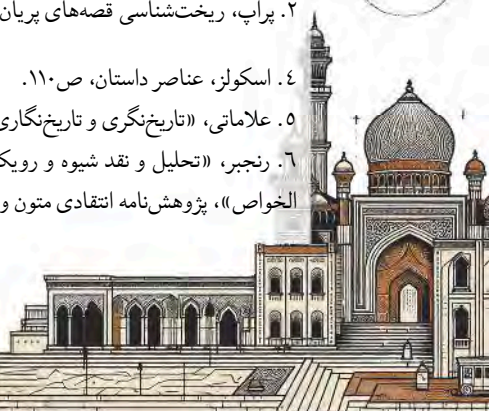 ۲. پراپ، ریخت‌شناسی قصه‌های پریان
٤. اسکولز، عناصر داستان، ص۱۱۰.
٥. علاماتی، «تاریخ‌نگری و تاریخ‌نگاری
٦. رنجبر، «تحلیل و نقد شیوه و رویک
الخواص»، پژوهش‌نامه انتقادی متون و